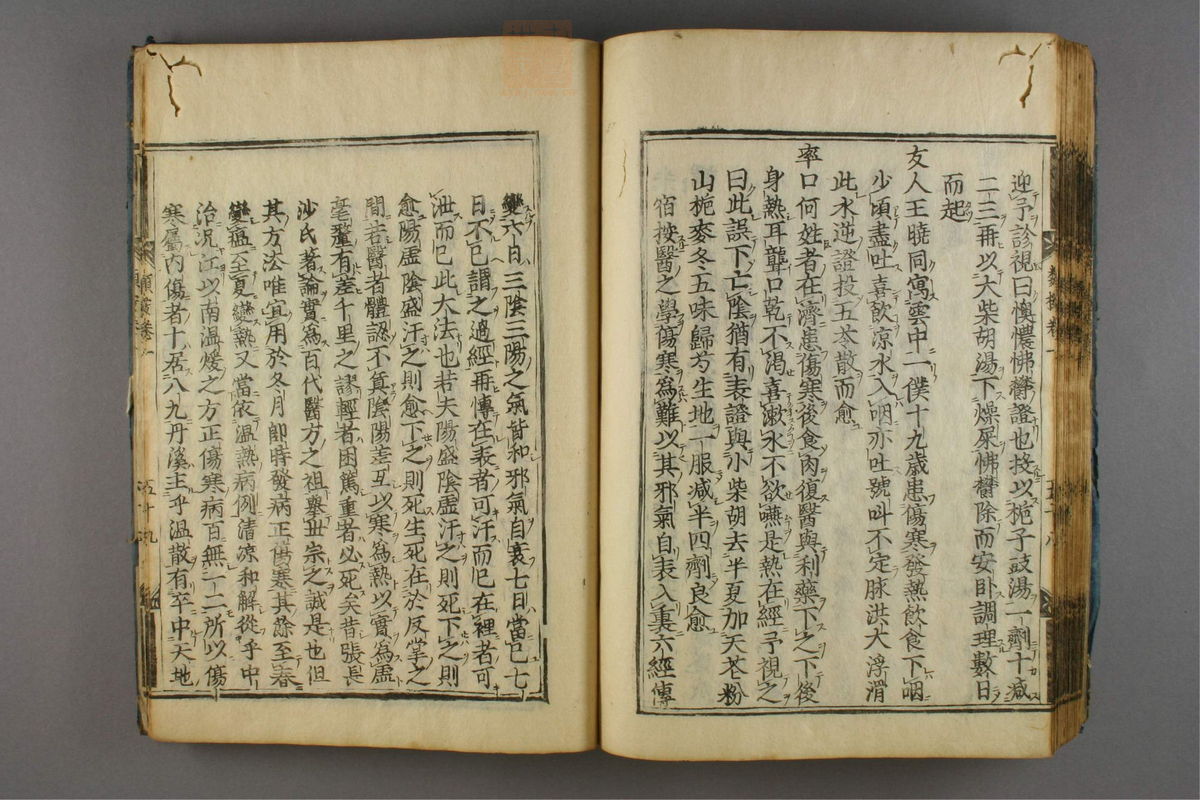 迎予診視曰懊憹怫欝證也投以梔子豉湯一劑十減
二三再以大柴胡湯下燥屎怫欝除而安卧調理數日
而起
友人王曉同寓雲中一僕十九歲患傷寒發熱飲食下咽
少頃盡吐喜飲凉水入咽亦吐號叫不定脉洪大浮滑
此水逆證投五苓散而愈
率口何姓者在濟患傷寒後食肉復醫與利藥下之下後
身熱耳聾口乾不渴喜漱水不欲嚥是熱在經予視之
曰此誤下亡陰猶有表證與小柴胡去半夏加天花粉
山梔麥冬五味歸芍生地一服减半四劑良愈
宿按醫之學傷寒為難以其邪氣自表入裏六經傳
變六日三陰三陽之氣皆和邪氣自衰七日當已七
日不已謂之過經再傳在表者可汗而已在裡者可
泄而已此大法也若夫陽盛陰虛汗之則死下之則
愈陽虛陰盛汗之則愈下之則死生死在於反掌之
間若醫者體認不眞陰陽差互以寒為熱以實為虛
毫釐有差千里之謬輕者困篤重者必死矣昔張長
沙氏著論實為百代醫方之祖擧丗宗之誠是也但
其方法唯宜用於冬月即時發病正傷寒其餘至春
變瘟至夏變熱又當依温熱病例清凉和解從乎中
治况江以南温煖之方正傷寒病百無一二所以傷
寒屬内傷者十居八九丹溪主乎温散有卒中天地
類卷一
五十八
五十九